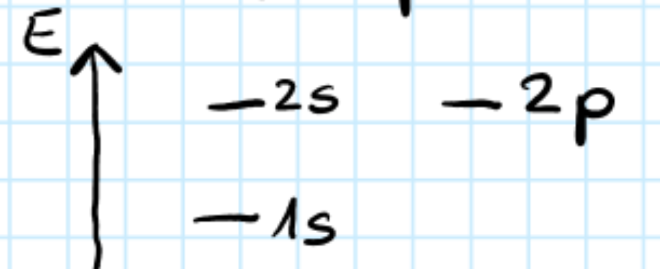 E
2s 2p
1s